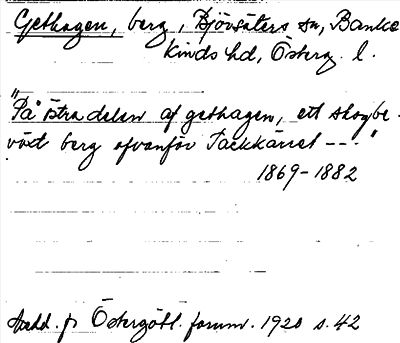 Gethagen, berg, Björsäters sn, Banke
kinds hd, Österg. l.
"På östra delen af gethagen, ett skogbe-
växt berg ofvanför Tackkärret ---"
1869-1882
Medd. fr Östergötl. fornm. 1920 s. 42